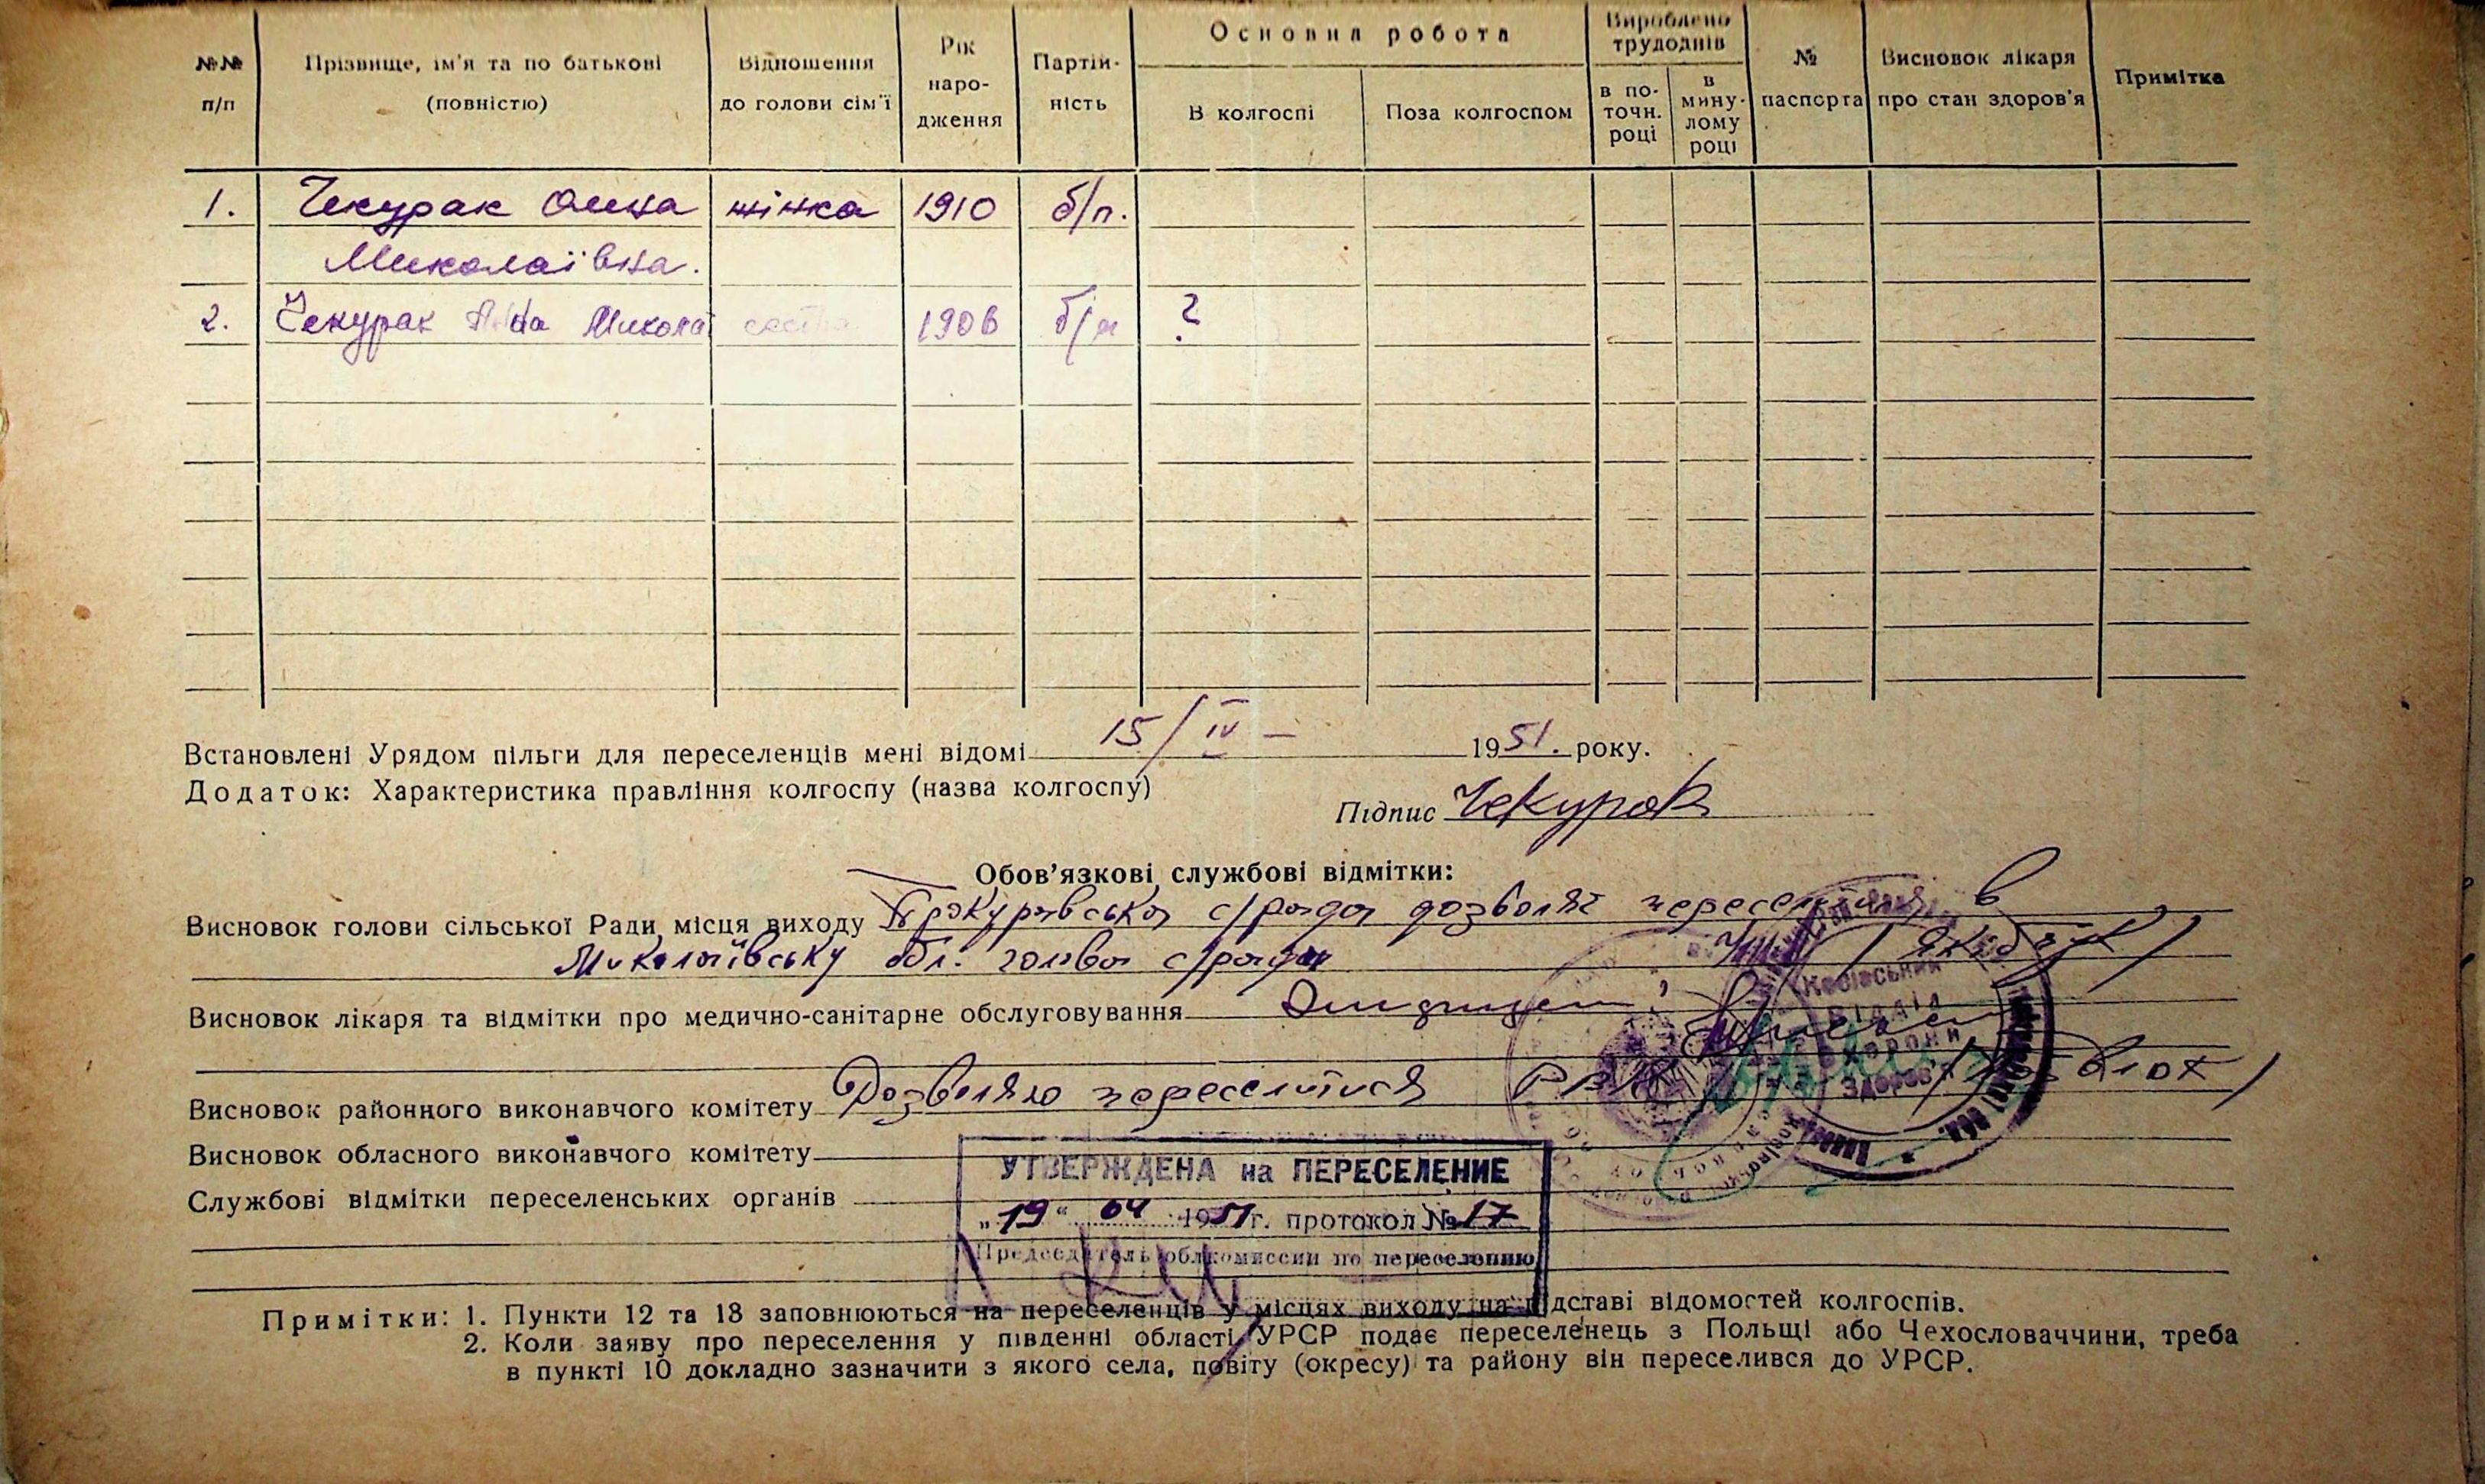 №№ п/п
Прізвище, ім'я та по батькові (повністю)
Відношення до голови сім'ї
Рік наро- дження
Партій- ність
Основна робота
В колгоспі
Поза колгоспом
Вироблено трудоднів
в по- точн. році
в мину- лому році
№ паспорта
Висновок лікаря про стан здоров'я
Примітка
1. Чекурак Олена жінка 1910 б/п.
Миколаївна.
2. Чекурак Микола 1906 б/п ?
Встановлені Урядом пільги для переселенців мені відомі 15/IV – 1951. року.
Додаток: Характеристика правління колгоспу (назва колгоспу)
Підпис Чекурак
Обов'язкові службові відмітки:
Висновок голови сільської Ради місця виходу с/рада дозволяє переселитися в
Миколаївську обл. голова с/ради
Висновок лікаря та відмітки про медично-санітарне обслуговування
Висновок районного виконавчого комітету Дозволяю переселитися
Висновок обласного виконавчого комітету
Службові відмітки переселенських органів
УТВЕРЖДЕНА на ПЕРЕСЕЛЕНИЕ
„19" 04 1951г. протокол №17
Председатель облкомиссии по переселению
відділ
охорони
здоров'я
Примітки: 1. Пункти 12 та 18 заповнюються на переселенців у місцях виходу на підставі відомостей колгоспів.
2. Коли заяву про переселення у південні області УРСР подає переселенець з Польщі або Чехословаччини, треба
в пункті 10 докладно зазначити з якого села, повіту (окресу) та району він переселився до УРСР.